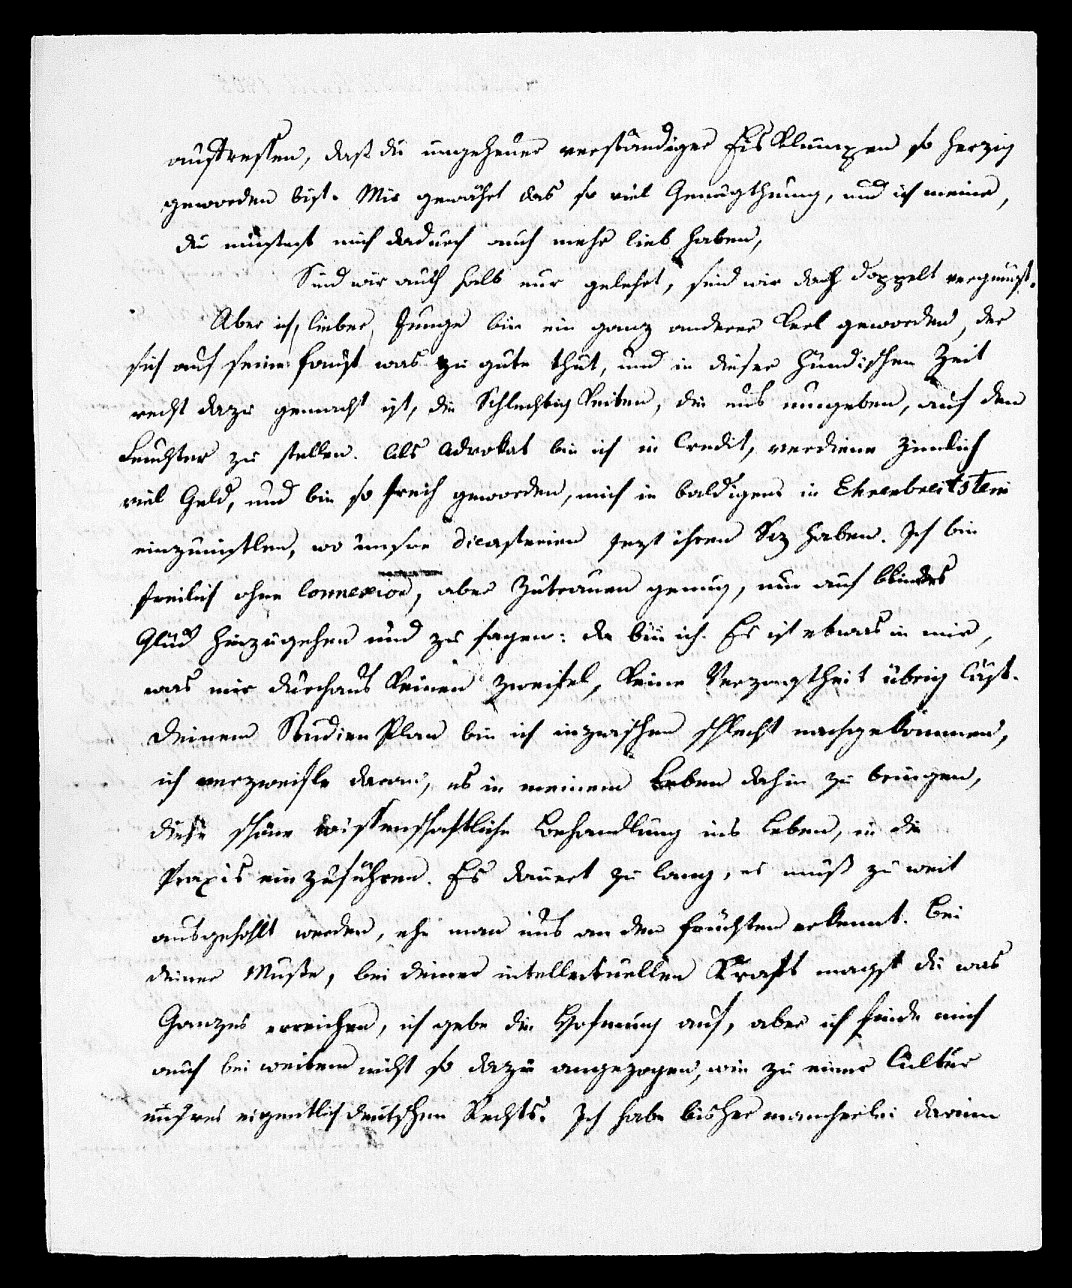 auffressen, daß du ungeheuer verständiger Eis Klumpen so herzig
geworden bist. Mir gewährt das so viel Genugthuung, und ich meine,
du müstest mich dadurch auch mehr lieb haben,
Sind wir auch halb nur gelehrt, sind wir doch doppelt vergnügt.
Aber ich, lieber Junge bin ein ganz anderer Kerl geworden, der
sich auf seine Faust was zu gute thut, und in dieser hündischen Zeit
recht dazu gemacht ist, die Schlechtigkeiten, die uns umgeben, auf den
Leuchter zu stellen. Als Advokat bin ich in Credit, verdiene zimlich
viel Geld, und bin so frech geworden, mich in baldigem in Ehrenbreitstein
einzunistlen, wo unsre Dicasterien jezt ihren Siz haben. Ich bin
freilich ohne Connexion, aber Zutrauen genug, nur auf blindes
Glück hinzugehen und zu sagen: da bin ich. Es ist etwas in mir,
was mir durchaus keinen Zweifel, keine Verzagtheit übrig läst.
Deinem Studien Plan bin ich inzwischen schlecht nachgekommen,
ich verzweifle daran, es in meinem Leben dahin zu bringen,
diese schöne wissenschaftliche Behandlung ins Leben, in die
Praxis einzuführen. Es dauert zu lang, es muß zu weit
ausgehohlt werden, ehe man uns an den Früchten erkennt. Bei
deiner Muße, bei deiner intellectuellen Kraft magst du was
Ganzes erreichen, ich gebe die Hofnung auf, aber ich finde mich
auch bei weitem nicht so dazu angezogen, wie zu einer Cultur
unsres eigentlich deutschen Rechts. Ich habe bisher mancherlei darinn